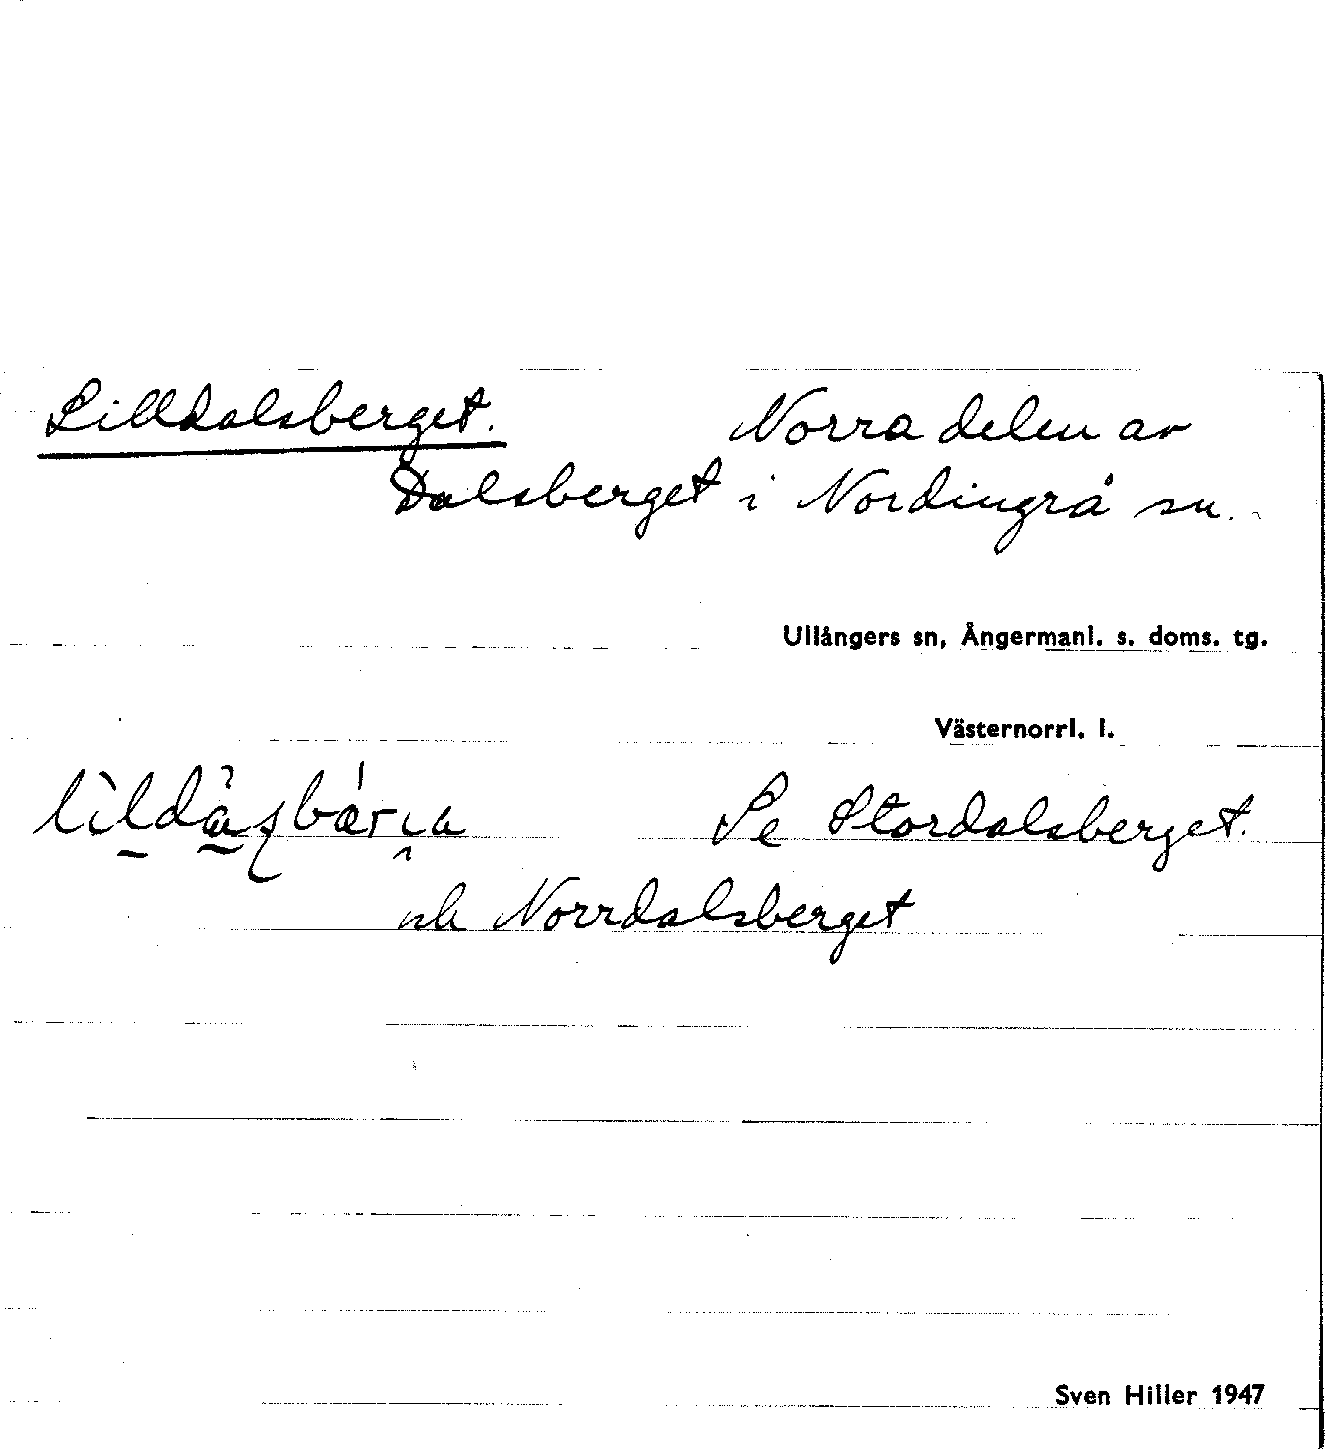 Lilldalsberget. Norra delen av
Dalsberget i Nordingrå sn.
Ullångers sn, Ångermanl. s. doms. tg.
Västernorrl. l.
Se Stordalsberget.
Norrdalsberget
Sven Hiller 1947